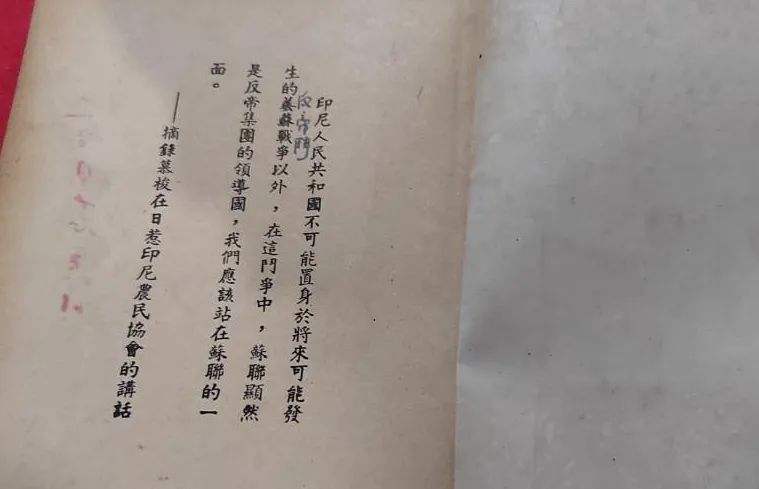 印尼人民共和國不可能置身於將來可能發
生的美蘇戰爭以外，在這鬥爭中，蘇聯顯然
是反帝集團的領導國，我們應該站在蘇聯的一
面。
——摘錄慕梭在日惹印尼農民協會的講話
反帝鬥